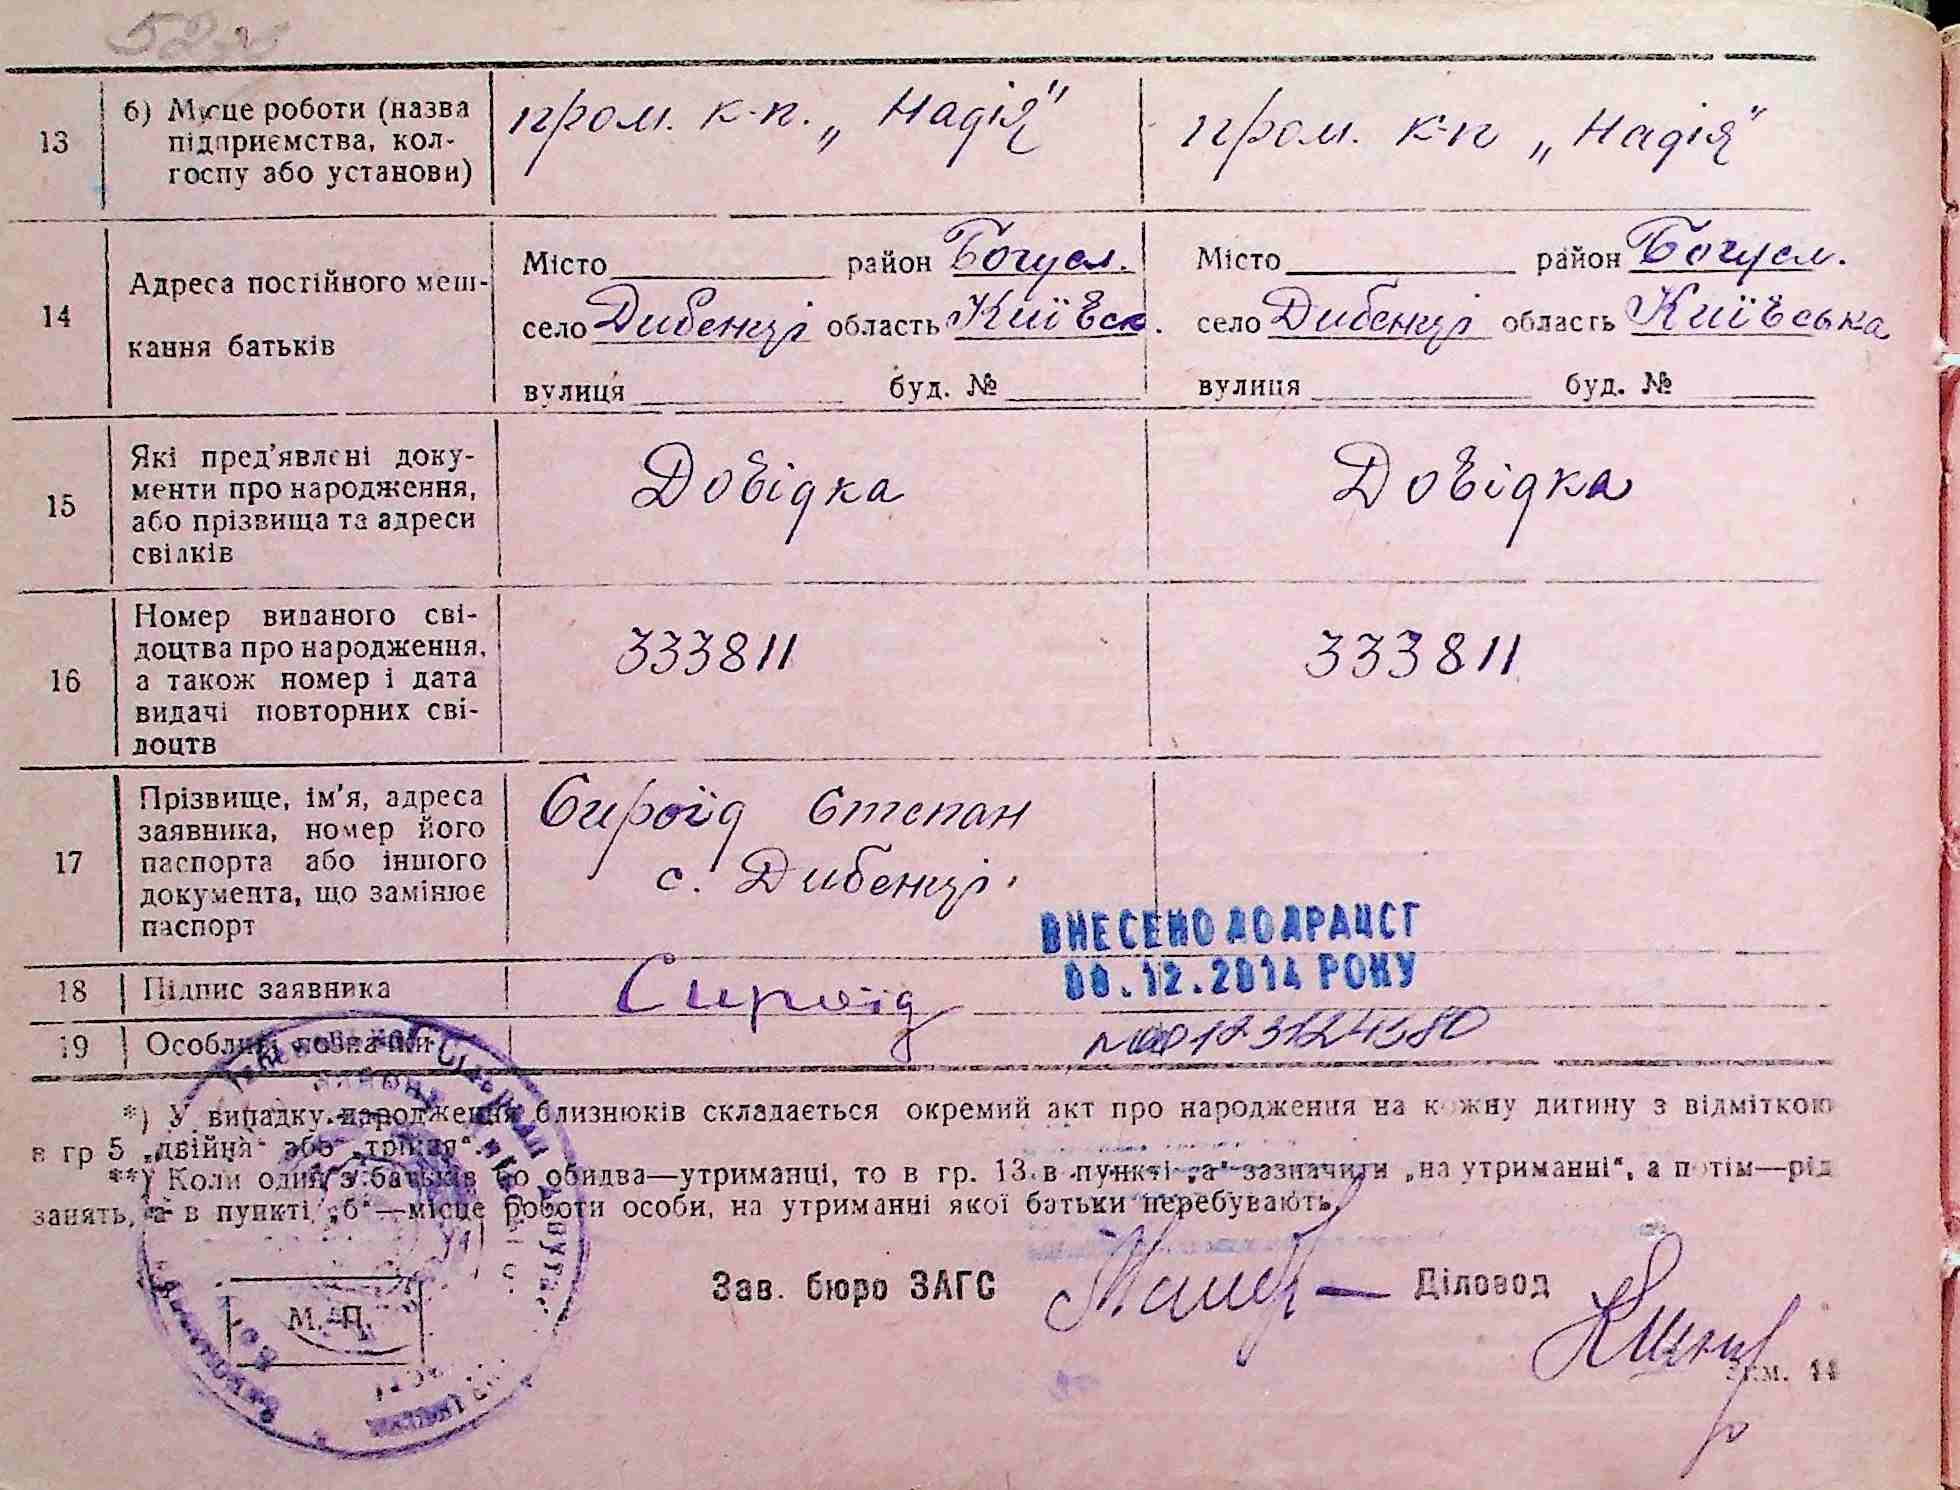 13
б) Місце роботи (назва
підприємства, кол-
госпу або установи)
пром. к-п. „Надія"
пром. к-п „Надія"
14
Адреса постійного меш-
кання батьків
Місто район Богусл.
село Дибенці область Київськ.
вулиця буд. №
Місто район Богусл.
село Дибенці область Київська
вулиця буд. №
15
Які пред'явлені доку-
менти про народження,
або прізвища та адреси
свідків
Довідка
Довідка
16
Номер виданого сві-
доцтва про народження,
а також номер і дата
видачі повторних сві-
доцтв
333811
333811
17
Прізвище, ім'я, адреса
заявника, номер його
паспорта або іншого
документа, що замінює
паспорт
Сироїд Степан
с. Дибенці.
ВНЕСЕНО ДО ДРАЦСГ
12.2014 РОКУ
18
Підпис заявника
Сироїд
19
Особливі позначки
*) У випадку народження близнюків складається окремий акт про народження на кожну дитину з відміткою
в гр 5 „двійня“ або „трійня“.
**) Коли один з батьків або обидва—утриманці, то в гр. 13 в пункті „а“ зазначити „на утриманні“, а потім—рід
занять, а в пункті „б“—місце роботи особи, на утриманні якої батьки перебувають.
М. П.
Зав. бюро ЗАГС
Діловод